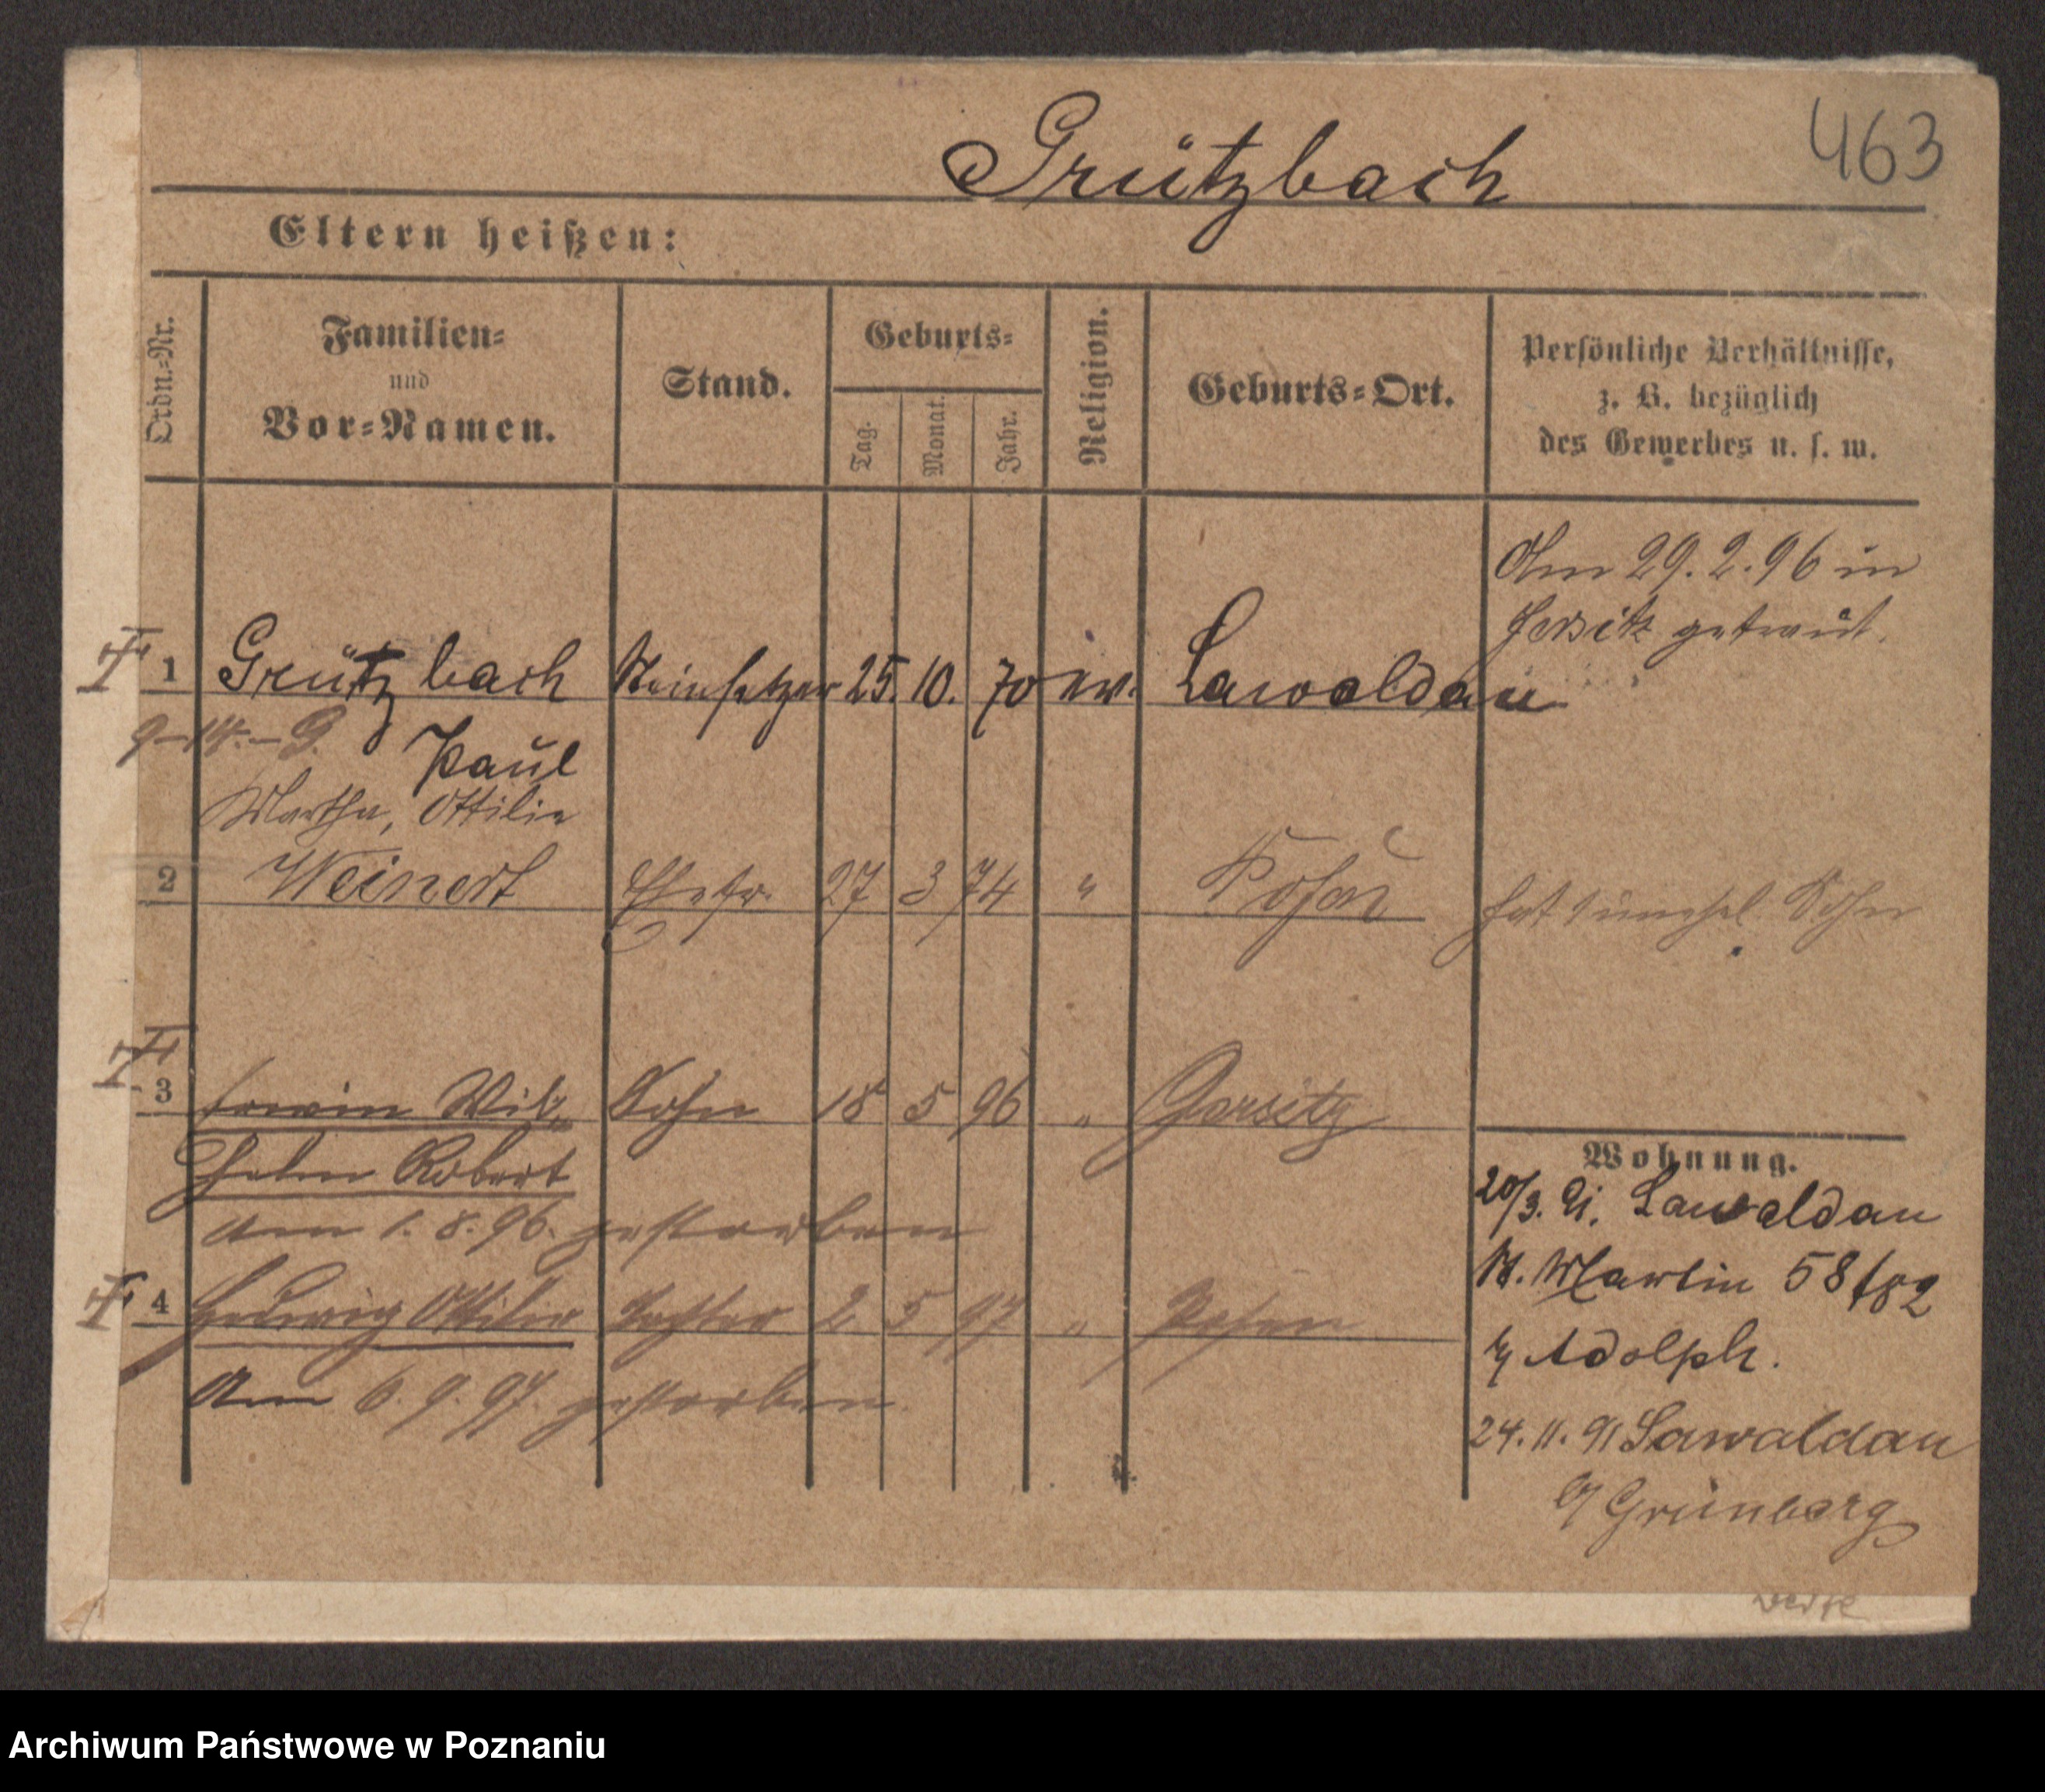 463
Grützbach
Eltern heißen:
Ordn.-Nr.
Familien-
und
Vor-Namen.
Stand.
Geburts-
Tag.
Monat.
Jahr.
Religion.
Geburts-Ort.
Persönliche Verhältnisse,
z. B. bezüglich
des Gewerbes u. s. w.
Am 29.2.96 in
Jersitz getraut.
1 Grützbach Steinsetzer 25. 10. 70 ev. Lawaldau
Paul
Martha, Ottilie
2 Weinert Ehefr. 27 3 74 " Posen hat 1 unehel. Sohn
3 Erwin Wil- Sohn 18 5 96 " Gersitz
helm Robert
am 1.8.96. gestorben
4 Hedwig Ottilie Tochter 2. 5 97 " Posen
Am 6.9.97. gestorben.
Wohnung.
20/3. 91. Lawaldau
St. Martin 58
Adolph.
24.11.91 Lawaldau
Grünberg
Archiwum Państwowe w Poznaniu